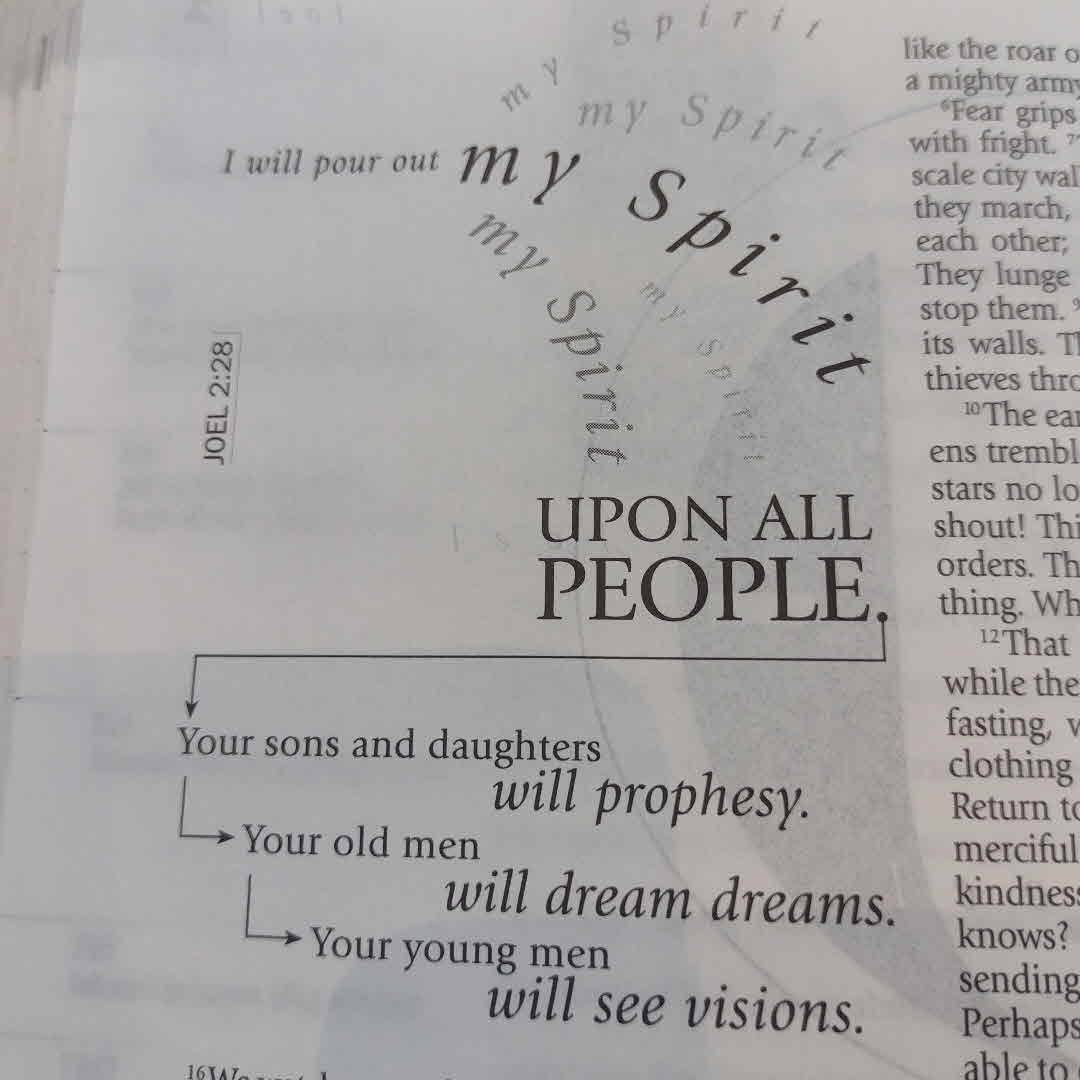 my Spirit
my Spirit
I will pour out my Spirit
my Spirit
my Spirit
JOEL 2:28
UPON ALL
PEOPLE.
Your sons and daughters
will prophesy.
Your old men
will dream dreams.
Your young men
will see visions.
16
like the roar
a mighty army
6Fear grips
with fright. 7
scale city
they march,
each other;
They lunge
stop them. 9
its walls.
thieves
10The
ens
stars no
shout!
orders.
thing.
12That
while the
fasting,
clothing
Return
merciful
knows?
sending
Perhaps
able to